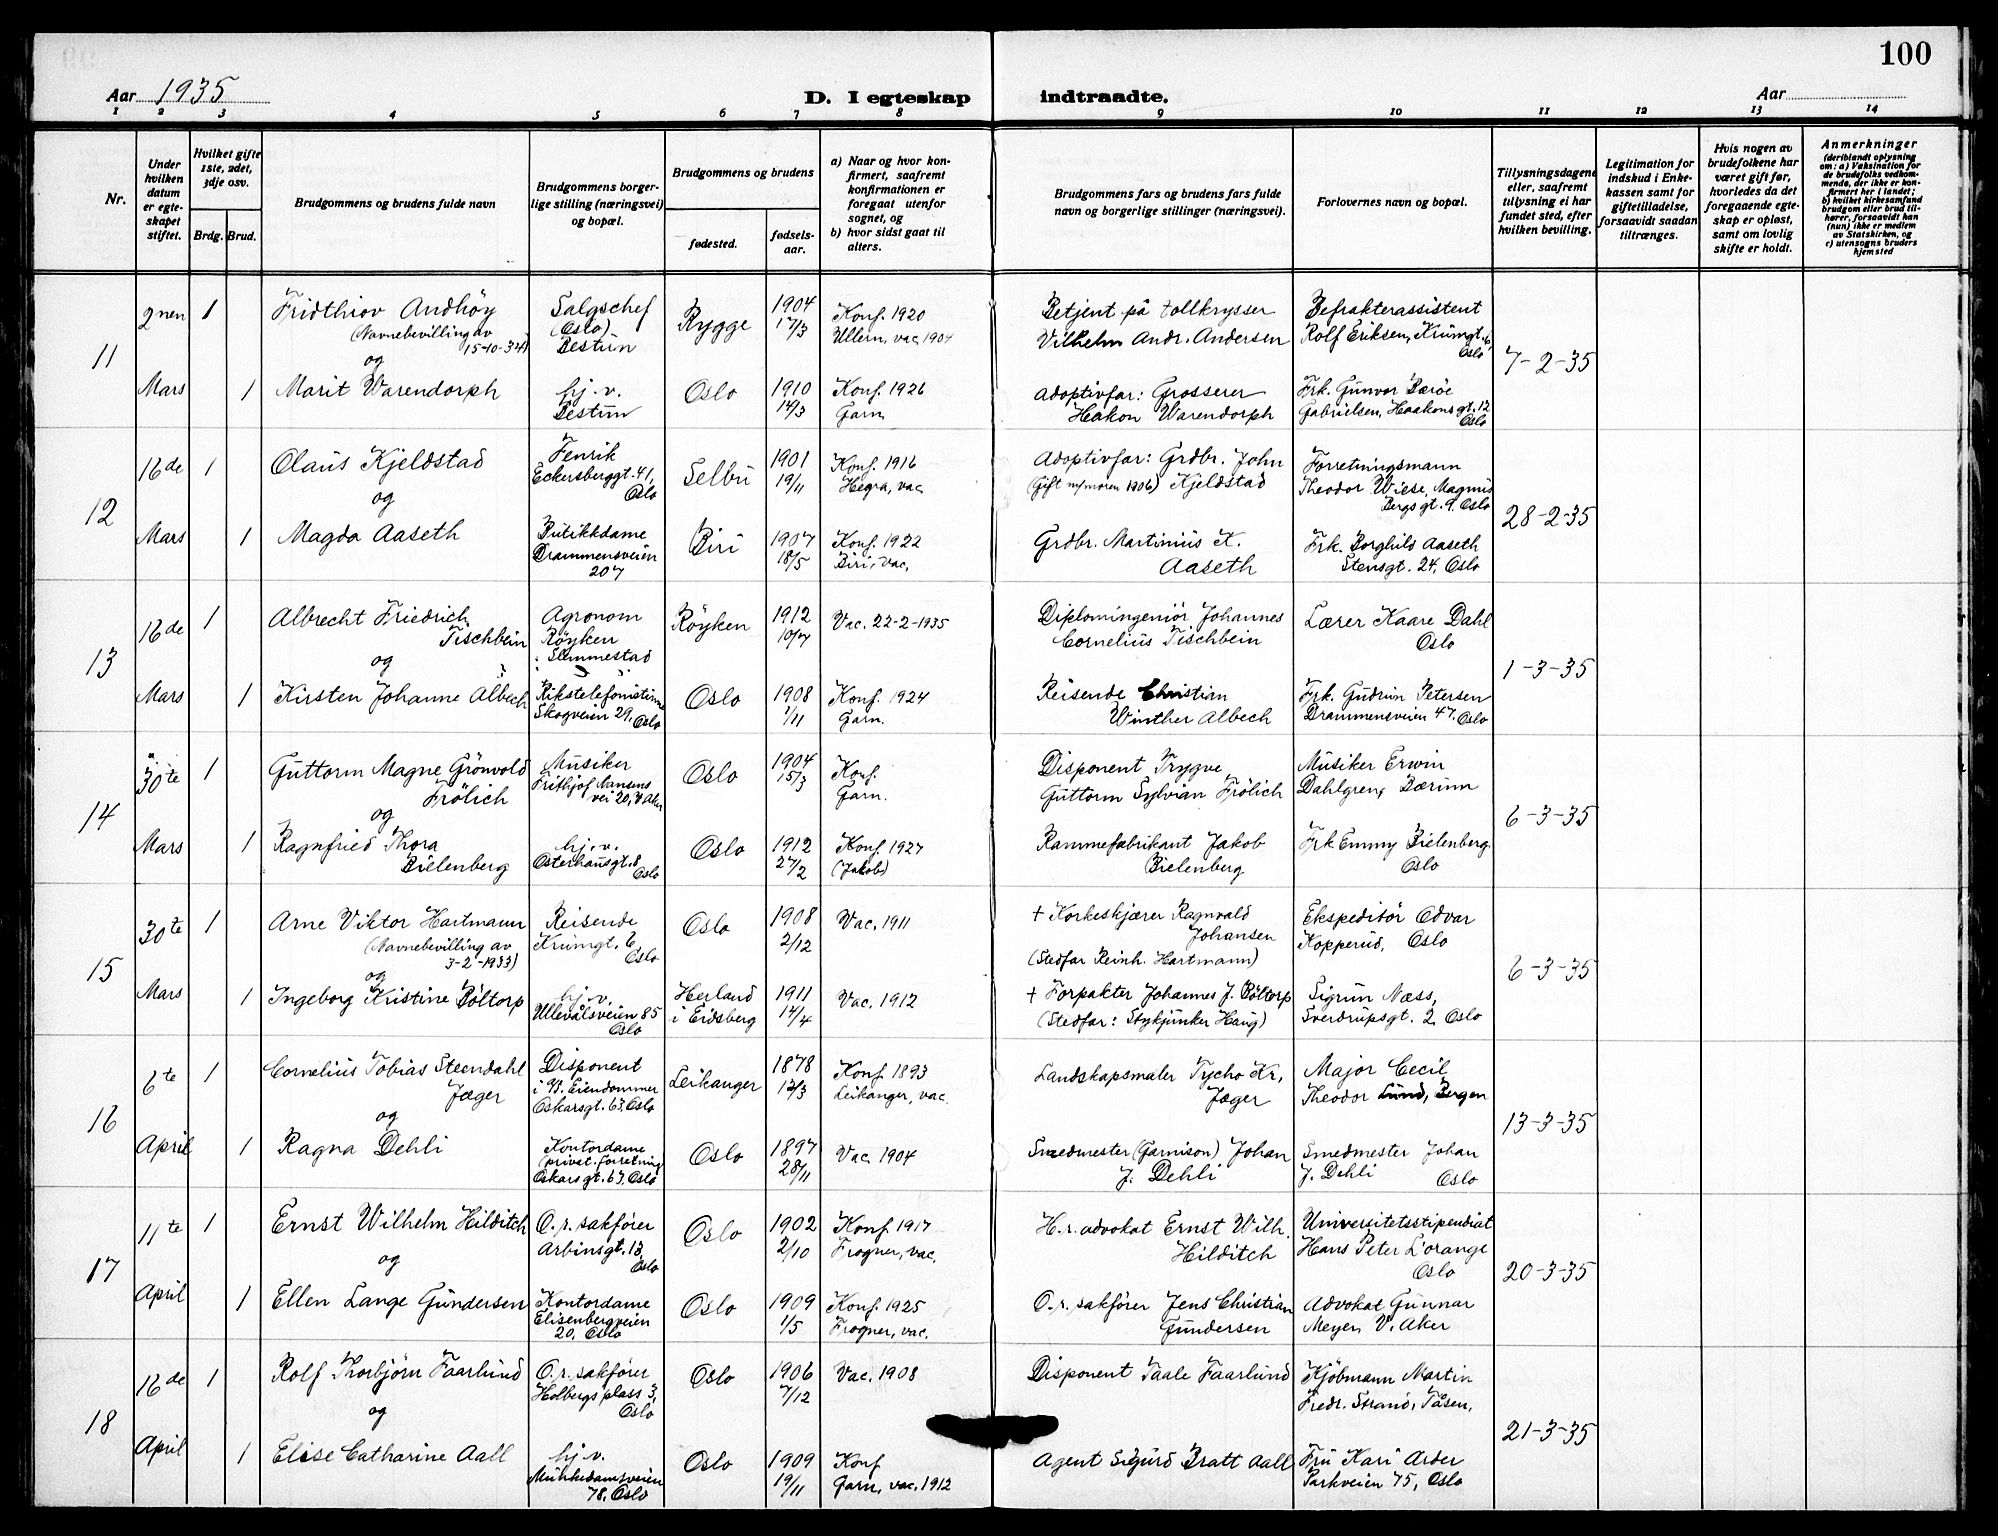 100
Aar 1935
D. I egteskap indtraadte.
Aar
1 2 3 4 5 6 7 8 9 10 11 12 13 14
Nr.
Under hvilken datum er egteskapet stiftet.
Hvilket gifte 1ste, 2det, 3dje osv.
Brdg. Brud.
Brudgommens og brudens fulde navn
Brudgommens borgerlige stilling (næringsvei) og bopæl.
Brudgommens og brudens
fødested.
fødselsaar.
a) Naar og hvor konfirmert, saafremt konfirmationen er foregaat utenfor sognet, og
b) hvor sidst gaat til alters.
Brudgommens fars og brudens fars fulde navn og borgerlige stillinger (næringsvei).
Forlovernes navn og bopæl.
Tillysningsdagene eller, saafremt tillysning ei har fundet sted, efter hvilken bevilling.
Legitimation for indskud i Enkekassen samt for giftetilladelse, forsaavidt saadan tiltrænges.
Hvis nogen av brudefolkene har været gift før, hvorledes da det foregaaende egteskap er opløst, samt om lovlig skifte er holdt.
Anmerkninger
(deriblandt oplysning om: a) Vaksination for de brudefolks vedkommende, der ikke er konfirmert her i landet; b) hvilket kirkesamfund brudgom eller brud tilhører, forsaavidt han (hun) ikke er medlem av Statskirken, og c) utensogns bruders hjemsted
11
2nen Mars
1 Fridthiov Andhøy (Navnebevilling av 15-10-34)
og
Salgschef (Oslo) Bestun
Rygge
1904 17/3
Konf. 1920 Ullern, vac. 1904
Betjent på tollkrysser Vilhelm Andr. Andersen
Befrakterassistent Rolf Eriksen, Krumgt. 6, Oslo
7-2-35
1 Marit Warendorph
hj. v. Bestun
Oslo
1910 14/3
Konf. 1926 Garn.
Adoptivfar: Grosserer Håkon Warendorph
Frk. Gunvor Barøe Gabrielsen, Haakonsgt. 12 Oslo
12
16de Mars
1 Olaus Kjeldstad
og
Fenrik Eckersberggt. 41, Oslo
Selbu
1901 19/11
Konf. 1916 Hegra, vac.
Adoptivfar: Grdbr. John (Gift m/moren 1906) Kjeldstad
Forretningsmann Theodor Wiese, Magnus Bergs gt. 9. Oslo
28-2-35
1 Magda Aaseth
Butikkdame Drammensveien 207
Biri
1907 18/5
Konf. 1922 Biri, vac.
Grdbr. Martinius K. Aaseth
Frk. Borghild Aaseth Stensgt. 24, Oslo
13
16de Mars
1 Albrecht Friedrich Tischbein
og
Agronom Røyken i Slemmestad
Røyken
1912 10/7
Vac. 22-2-1935
Diplomingeniør Johannes Cornelius Tischbein
Lærer Kaare Dahl Oslo
1-3-35
1 Kirsten Johanne Albech
Rikstelefonistinne Skogveien 29, Oslo
Oslo
1908 1/11
Konf. 1924 Garn.
Reisende Christian Winther Albech
Frk. Gudrun Petersen Drammensveien 47, Oslo
14
30te Mars
1 Guttorm Magne Grønvold Frölich
og
Musiker Frithjof Nansens vei 20, V. Aker
Oslo
1904 15/3
Konf. Garn.
Disponent Trygve Guttorm Sylvian Frölich
Musiker Erwin Dahlgren, Bærum
6-3-35
1 Ragnfried Thora Bielenberg
hj. v. Osterhausgt. 8 Oslo
Oslo
1912 27/2
Konf. 1927 (Jakob)
Rammefabrikant Jakob Bielenberg
Frk Emmy Bielenberg Oslo
15
30te Mars
1 Arne Viktor Hartmann (Navnebevilling av 3-2-1933)
og
Reisende Krumgt. 6 Oslo
Oslo
1908 2/12
Vac. 1911
† Korkeskjærer Ragnvald Johansen (Stedfar Reinh. Hartmann)
Ekspeditør Odvar Kopperud, Oslo
6-3-35
1 Ingeborg Kristine Bøltorp
hj. v. Ullevålsveien 85 Oslo
Herland i Eidsberg
1911 14/4
Vac. 1912
† Forpakter Johannes J. Bøltorp (Stedfar: Stykjunker Haug)
Sigrun Næss, Sverdrupsgt. 2, Oslo
16
6te April
1 Cornelius Tobias Steendahl Jæger
og
Disponent i Eiendommer Oskarsgt. 63, Oslo
Leikanger
1878 12/3
Konf 1893 Leikanger, vac.
Landskapsmaler Tycho Kr. Jæger
Major Cecil Theodor Lund, Bergen
13-3-35
1 Ragna Dehli
Kontordame privat. forretning Oskarsgt. 63, Oslo
Oslo
1897 28/11
Vac. 1904
Smedmester (Garnison) Johan J. Dehli
Smedmester Johan J. Dehli Oslo
17
11te April
1 Ernst Wilhelm Hilditch
og
O. r. sakfører Arbinsgt. 13, Oslo
Oslo
1902 2/10
Konf. 1917 Frogner, vac.
H. r. advokat Ernst Wilh. Hilditch
Universitetsstipendiat Hans Peter L'orange Oslo
20-3-35
1 Ellen Lange Gundersen
Kontordame Elisenbergveien 20, Oslo
Oslo
1909 1/5
Konf. 1925 Frogner, vac.
O. r. sakfører Jens Christian Gundersen
Advokat Gunnar Meyer, V. Aker
18
16de April
1 Rolf Thorbjörn Faarlund
og
O. r. sakfører Holbergs plass 3, Oslo
Oslo
1906 7/12
Vac. 1908
Disponent Taale Faarlund
Kjøbmann Martin Fredr. Strand, Tåsen,
21-3-35
1 Elise Catharine Aall
hj. v. Munkedamsveien 78, Oslo
Oslo
1909 19/11
Konf Garn, vac. 1912
Agent Sigurd Bratt Aall
Fru Kari Arder Parkveien 75, Oslo